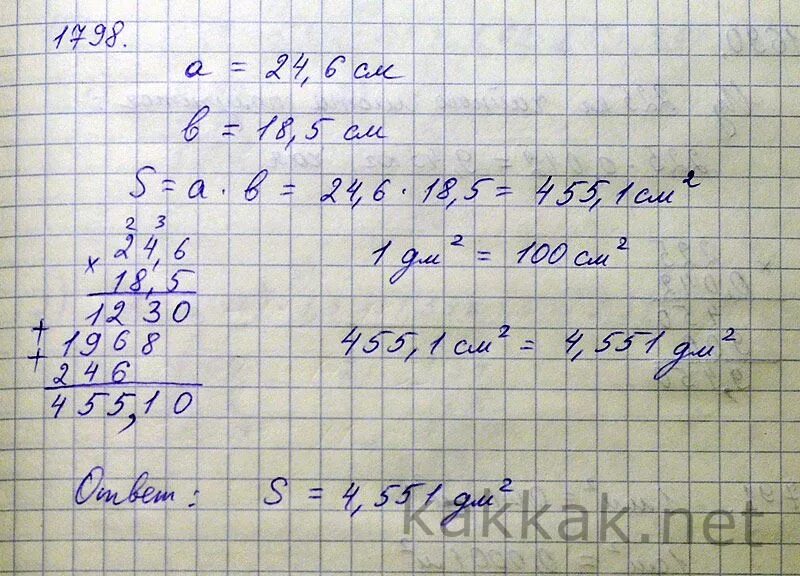 1798.
a = 24,6 см
в = 18,5 см
S = a · в = 24,6 · 18,5 = 455,1 см²
2 3
× 24,6
18,5
1230
+ 1968
+ 246
455,10
1 дм² = 100 см²
455,1 см² = 4,551 дм²
Ответ: S = 4,551 дм²
kakkak.net